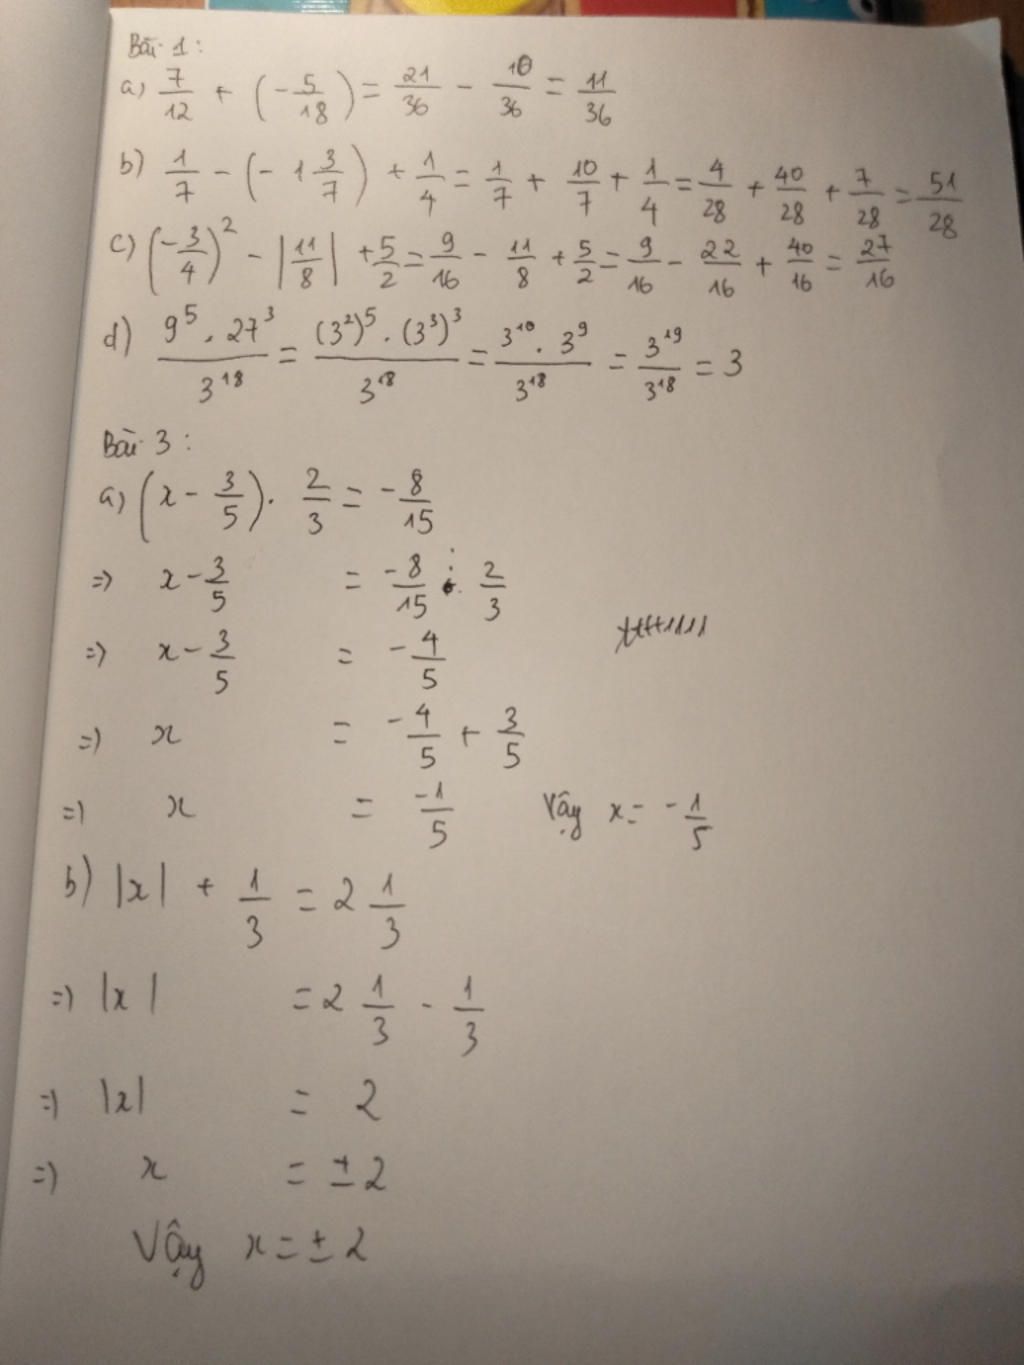 Bài 1:
a) 7/12 + (-5/18) = 21/36 - 10/36 = 11/36
b) 1/7 - (-1 3/7) + 1/4 = 1/7 + 10/7 + 1/4 = 4/28 + 40/28 + 7/28 = 51/28
c) (-3/4)² - |11/8| + 5/2 = 9/16 - 11/8 + 5/2 = 9/16 - 22/16 + 40/16 = 27/16
d) 9⁵ . 27³ / 3¹⁸ = (3²)⁵ . (3³)³ / 3¹⁸ = 3¹⁰ . 3⁹ / 3¹⁸ = 3¹⁹ / 3¹⁸ = 3
Bài 3:
a) (x - 3/5) . 2/3 = -8/15
=> x - 3/5 = -8/15 : 2/3
=> x - 3/5 = -4/5
=> x = -4/5 + 3/5
=> x = -1/5 Vậy x = -1/5
b) |x| + 1/3 = 2 1/3
=> |x| = 2 1/3 - 1/3
=> |x| = 2
=> x = ±2
Vậy x = ±2